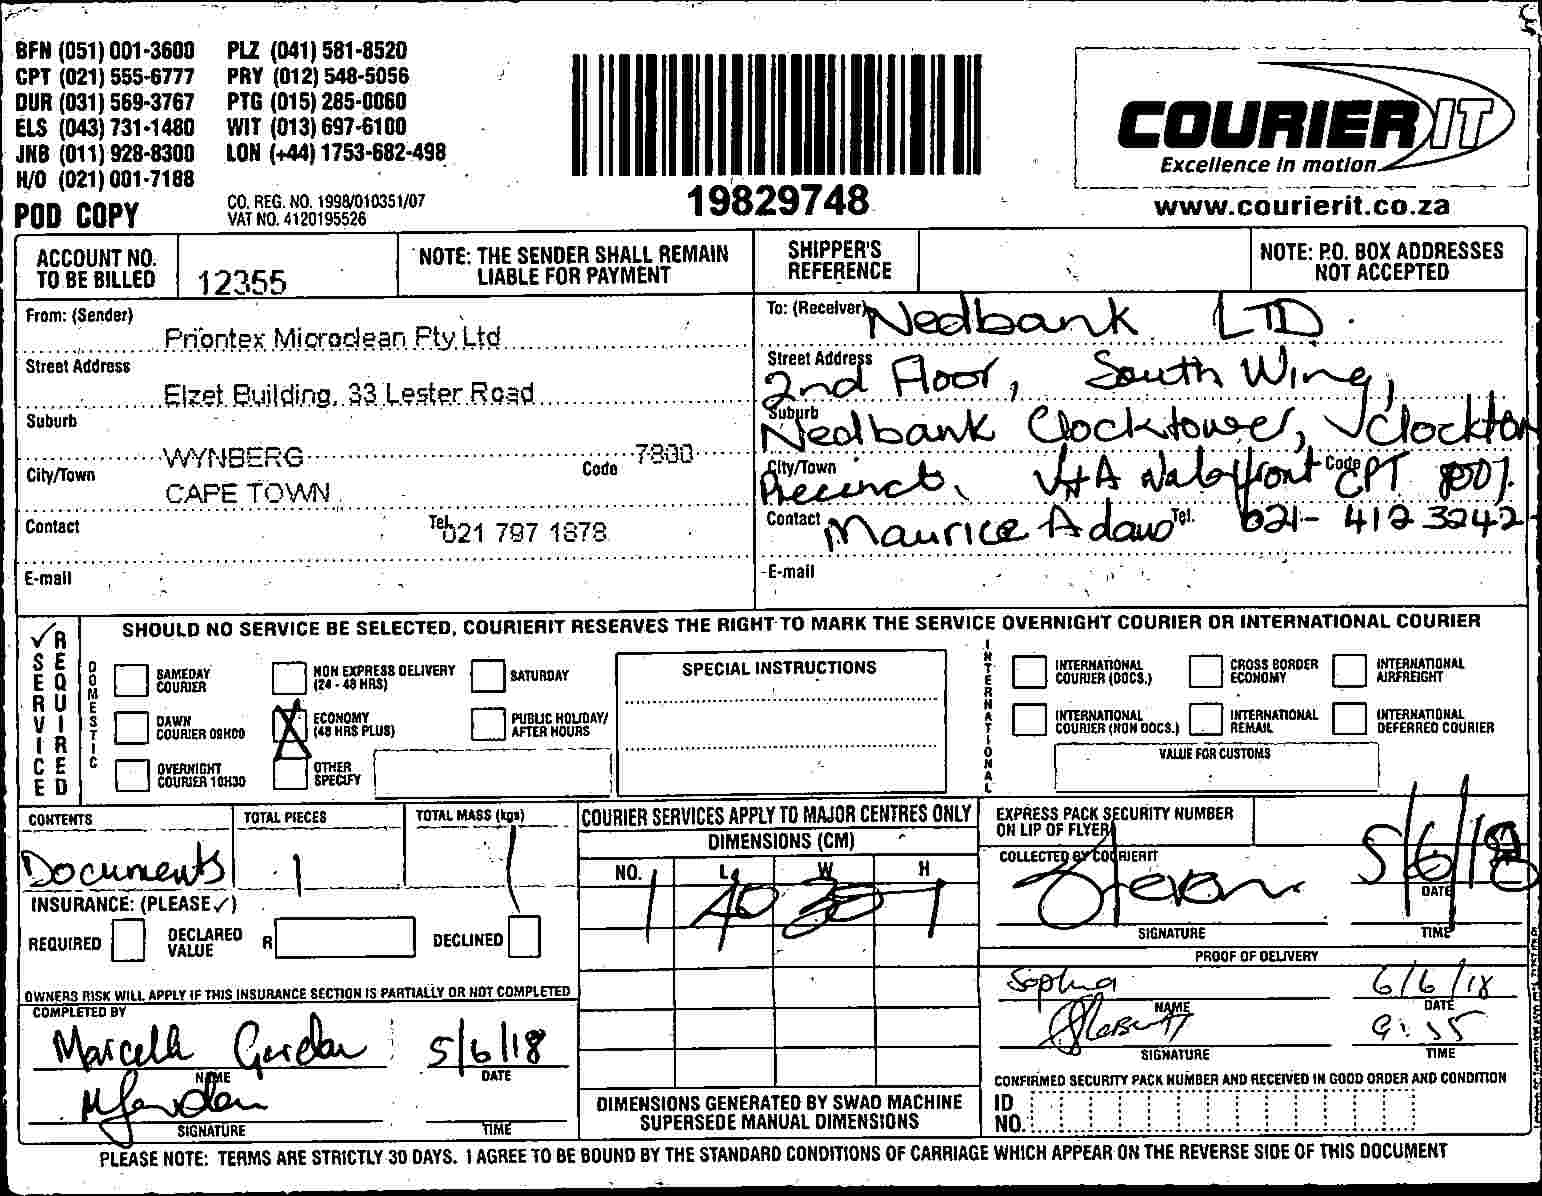 BFN (051) 001-3600 PLZ (041) 581-8520
CPT (021) 555-6777 PRY (012) 548-5056
DUR (031) 569-3767 PTG (015) 285-0060
ELS (043) 731-1480 WIT (013) 697-6100
JNB (011) 928-8300 LON (+44) 1753-682-498
H/O (021) 001-7188
POD COPY
CO. REG. NO. 1998/010351/07
VAT NO. 4120195526
19829748
COURIER IT
Excellence in motion
www.courierit.co.za
ACCOUNT NO. TO BE BILLED 12355
NOTE: THE SENDER SHALL REMAIN LIABLE FOR PAYMENT
SHIPPER'S REFERENCE
NOTE: P.O. BOX ADDRESSES NOT ACCEPTED
From: (Sender)
Priontex Microclean Pty Ltd
Street Address
Elzet Building, 33 Lester Road
Suburb
WYNBERG
City/Town
CAPE TOWN
Code 7800
Contact
Tel. 021 797 1878
E-mail
To: (Receiver) Nedbank LTD.
Street Address
2nd Floor, South Wing,
Suburb
Nedbank Clocktower, Clockton
City/Town
Precinct, V+A Waterfront Code CPT 8001.
Contact Maurice Adams Tel. 021- 412 3242
E-mail
SERVICE REQUIRED
SHOULD NO SERVICE BE SELECTED, COURIERIT RESERVES THE RIGHT TO MARK THE SERVICE OVERNIGHT COURIER OR INTERNATIONAL COURIER
DOMESTIC
SAMEDAY COURIER
NON EXPRESS DELIVERY (24 - 48 HRS)
SATURDAY
DAWN COURIER 09H00
ECONOMY (48 HRS PLUS)
PUBLIC HOLIDAY/ AFTER HOURS
OVERNIGHT COURIER 10H30
OTHER SPECIFY
SPECIAL INSTRUCTIONS
INTERNATIONAL
INTERNATIONAL COURIER (DOCS.)
CROSS BORDER ECONOMY
INTERNATIONAL AIRFREIGHT
INTERNATIONAL COURIER (NON DOCS.)
INTERNATIONAL REMAIL
INTERNATIONAL DEFERRED COURIER
VALUE FOR CUSTOMS
CONTENTS
Documents
TOTAL PIECES
1
TOTAL MASS (kgs)
1
INSURANCE: (PLEASE ✓)
REQUIRED
DECLARED VALUE R
DECLINED
OWNERS RISK WILL APPLY IF THIS INSURANCE SECTION IS PARTIALLY OR NOT COMPLETED
COMPLETED BY
Marcelle Gordon 5/6/18
NAME DATE
SIGNATURE TIME
COURIER SERVICES APPLY TO MAJOR CENTRES ONLY
DIMENSIONS (CM)
NO. L W H
1 40 30 1
DIMENSIONS GENERATED BY SWAD MACHINE
SUPERSEDE MANUAL DIMENSIONS
EXPRESS PACK SECURITY NUMBER ON LIP OF FLYER
COLLECTED BY COURIERIT
5/6/18
DATE
SIGNATURE TIME
PROOF OF DELIVERY
Sophia 6/6/18
NAME DATE
9:55
SIGNATURE TIME
CONFIRMED SECURITY PACK NUMBER AND RECEIVED IN GOOD ORDER AND CONDITION
ID NO.
PLEASE NOTE: TERMS ARE STRICTLY 30 DAYS. I AGREE TO BE BOUND BY THE STANDARD CONDITIONS OF CARRIAGE WHICH APPEAR ON THE REVERSE SIDE OF THIS DOCUMENT